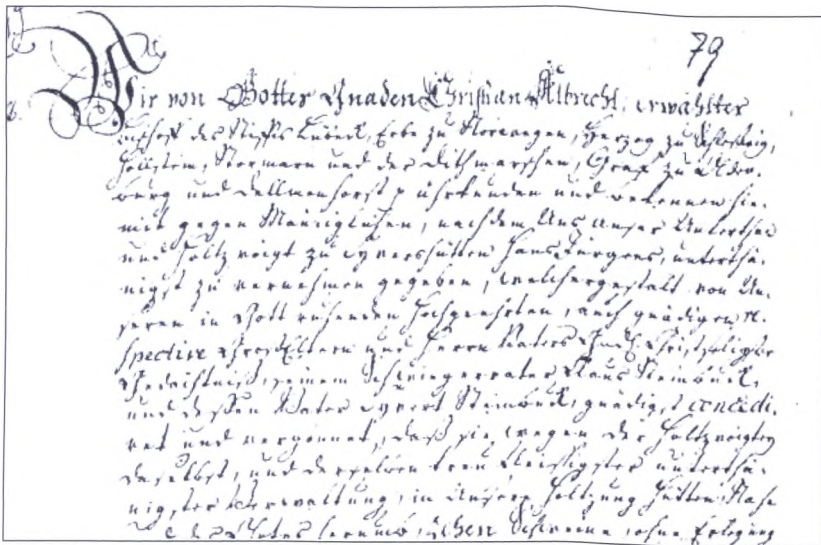 79
Wir von Gottes Gnaden Christian Albrecht, erwählter
Bischoff des Stiffts Lübeck, Erbe zu Norwegen, Herzog zu Schleßwig,
Hollstein, Stormarn und der Dithmarschen, Graf zu Olden-
burg und Dellmenhorst p uhrkunden und bekennen hie-
mit gegen Männiglichen, nachdem Uns Unser Unterthan
und Holtzvoigt zu Hans Jürgens, unterthä-
nigst zu vernehmen gegeben, welchergestalt von Un-
seren in Gott ruhenden Hochgeehrten, auch gnädigen re-
spective GroßEltern und Herrn Vaters Christseligster
Gedächtniß, seinem Schwiegervater Claus Steinbuck,
und deßen Vater Steinbuck, gnädigst concedi-
ret und vergönnet, daß sie wegen der Holtzvoigtey
daselbst, und derselben treu fleißigster unterthä-
nigster Verwaltung, in Unsere Holtzung Hütten
Schweine, ohne Erlegung